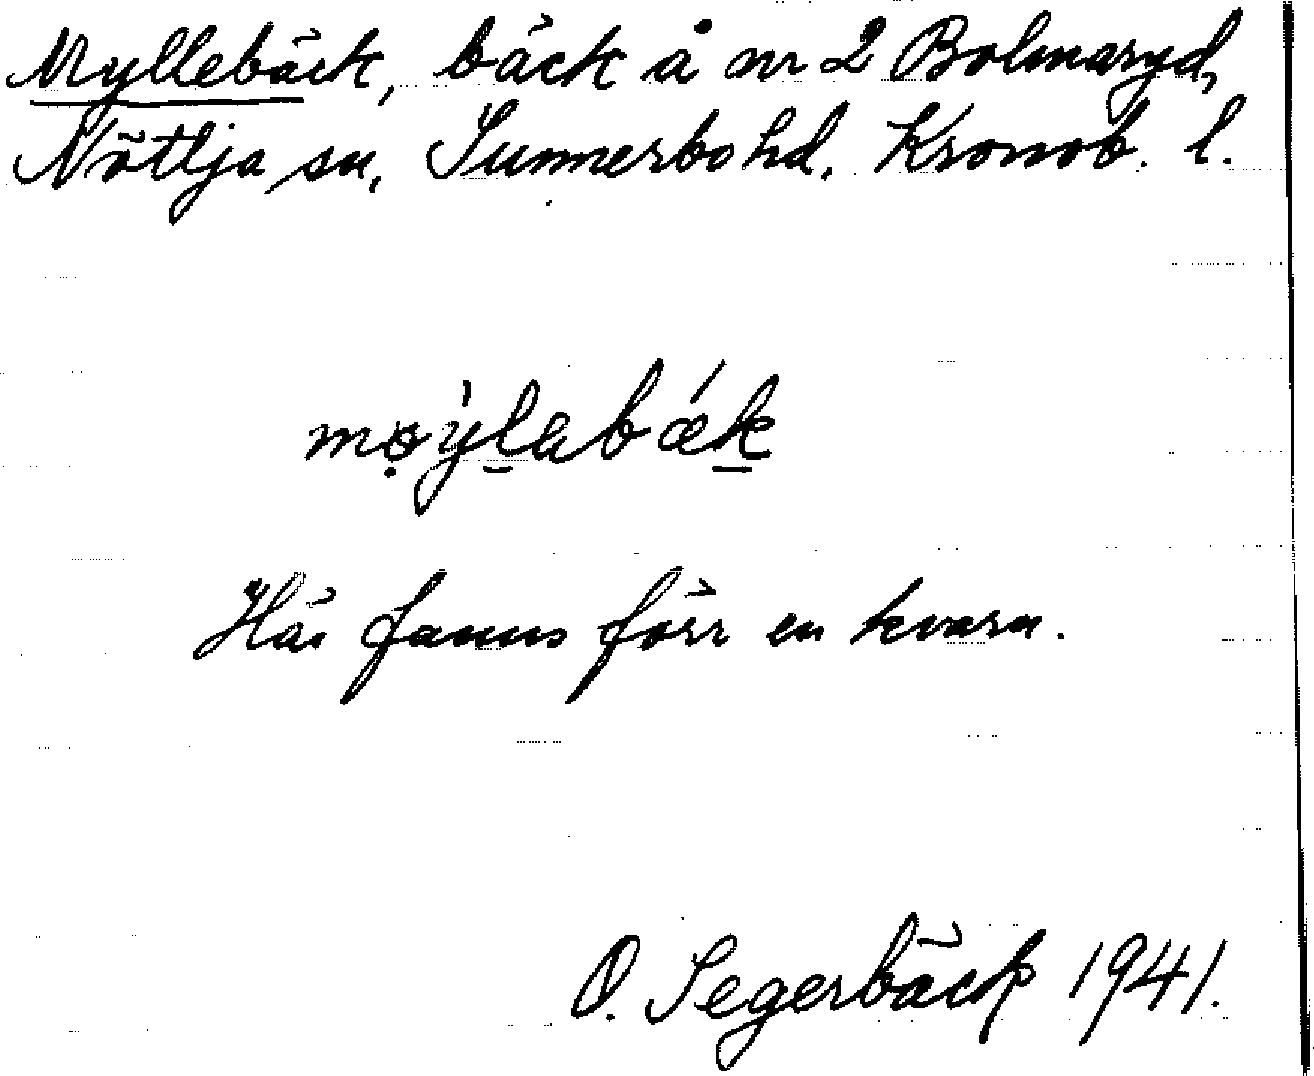 Myllebäck, bäck å nr 2 Bolmaryd,
Nöttja sn, Sunnerbo hd. Kronob. l.
mø̣ýl̠abǽk̠
Här fanns förr en kvarn.
O. Segerbäck 1941.